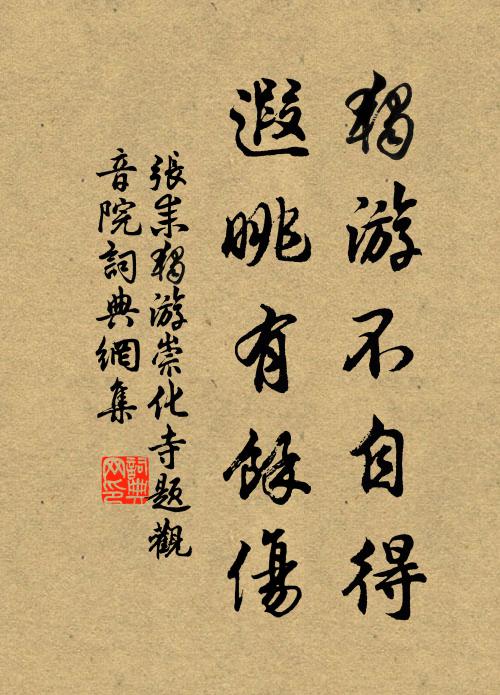 獨游不自得
遐眺有餘傷
張耒獨游崇化寺題觀
音院詞典網集
詞典
网印